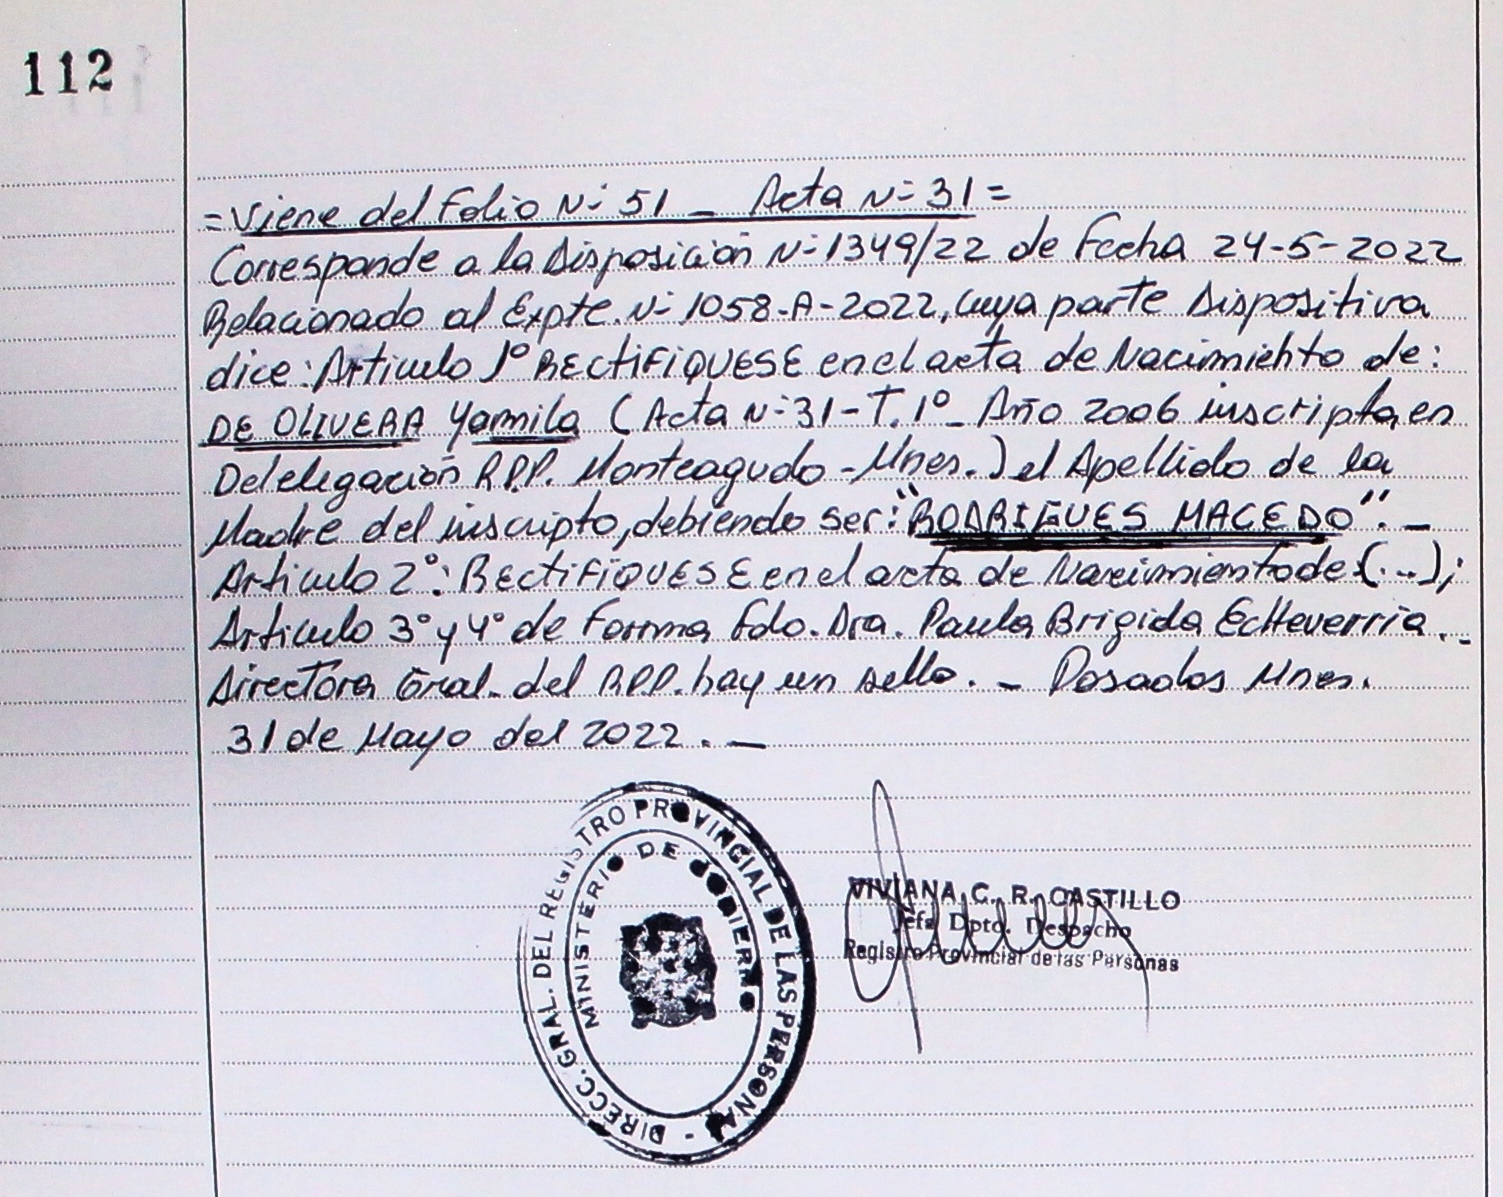 112
=Viene del Folio Nº 51 _ Acta Nº 31=
Corresponde a la Disposición Nº 1349/22 de Fecha 24-5-2022
Relacionado al Expte. Nº 1058-A-2022, cuya parte Dispositiva
dice: Articulo 1º RECTIFIQUESE en el acta de Nacimiento de:
DE OLIVERA Yamila (Acta Nº 31-T. 1º_ Año 2006 inscripta, en
Delelegación R.P.P. Monteagudo - Mnes.) el Apellido de la
Madre del inscripto, debiendo ser: "RODRIGUES MACEDO". _
Articulo 2º: RECTIFIQUESE en el acta de Nacimiento de (...);
Articulo 3º y 4º de Forma Fdo. Dra. Paula Brigida Echeverria. _
Directora Gral. del R.P.P. hay un sello. _ Posadas Mnes.
31 de Mayo del 2022. _
DIRECC. GRAL. DEL REGISTRO PROVINCIAL DE LAS PERSONAS -
MINISTERIO DE GOBIERNO
VIVIANA C. R. CASTILLO
Jefa Dpto. Despacho
Registro Provincial de las Personas